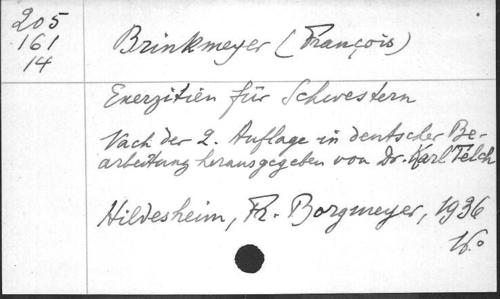 205
161
14
Brinkmeyer (François)
Exerzitien für Schwestern
Nach der 2. Auflage in deutscher Be-
arbeitung herausgegeben von Dr. Karl Telch
Hildesheim, Fr. Borgmeyer, 1936